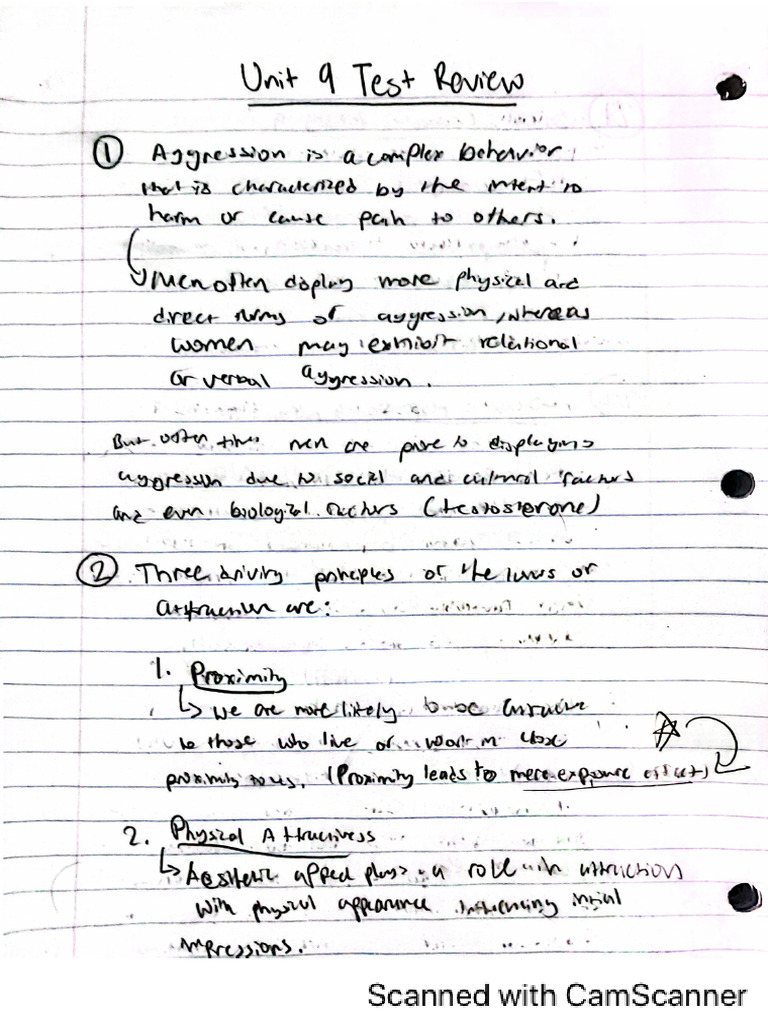 Unit 9 Test Review
① Aggression is a complex behavior
that is characterized by the intent to
harm or cause pain to others.
Men often display more physical and
direct forms of aggression, whereas
women may exhibit relational
or verbal aggression.
But often times men are prone to displaying
aggression due to social and cultural factors
and even biological factors (testosterone)
② Three driving principles of the laws of
attraction are:
1. Proximity
↳ we are more likely to be
to those who live or work in close
proximity to us. (Proximity leads to mere exposure effect)
2. Physical Attractivess
↳ Aesthetic appeal plays a role in attraction
with physical appearance influencing initial
impressions.
Scanned with CamScanner